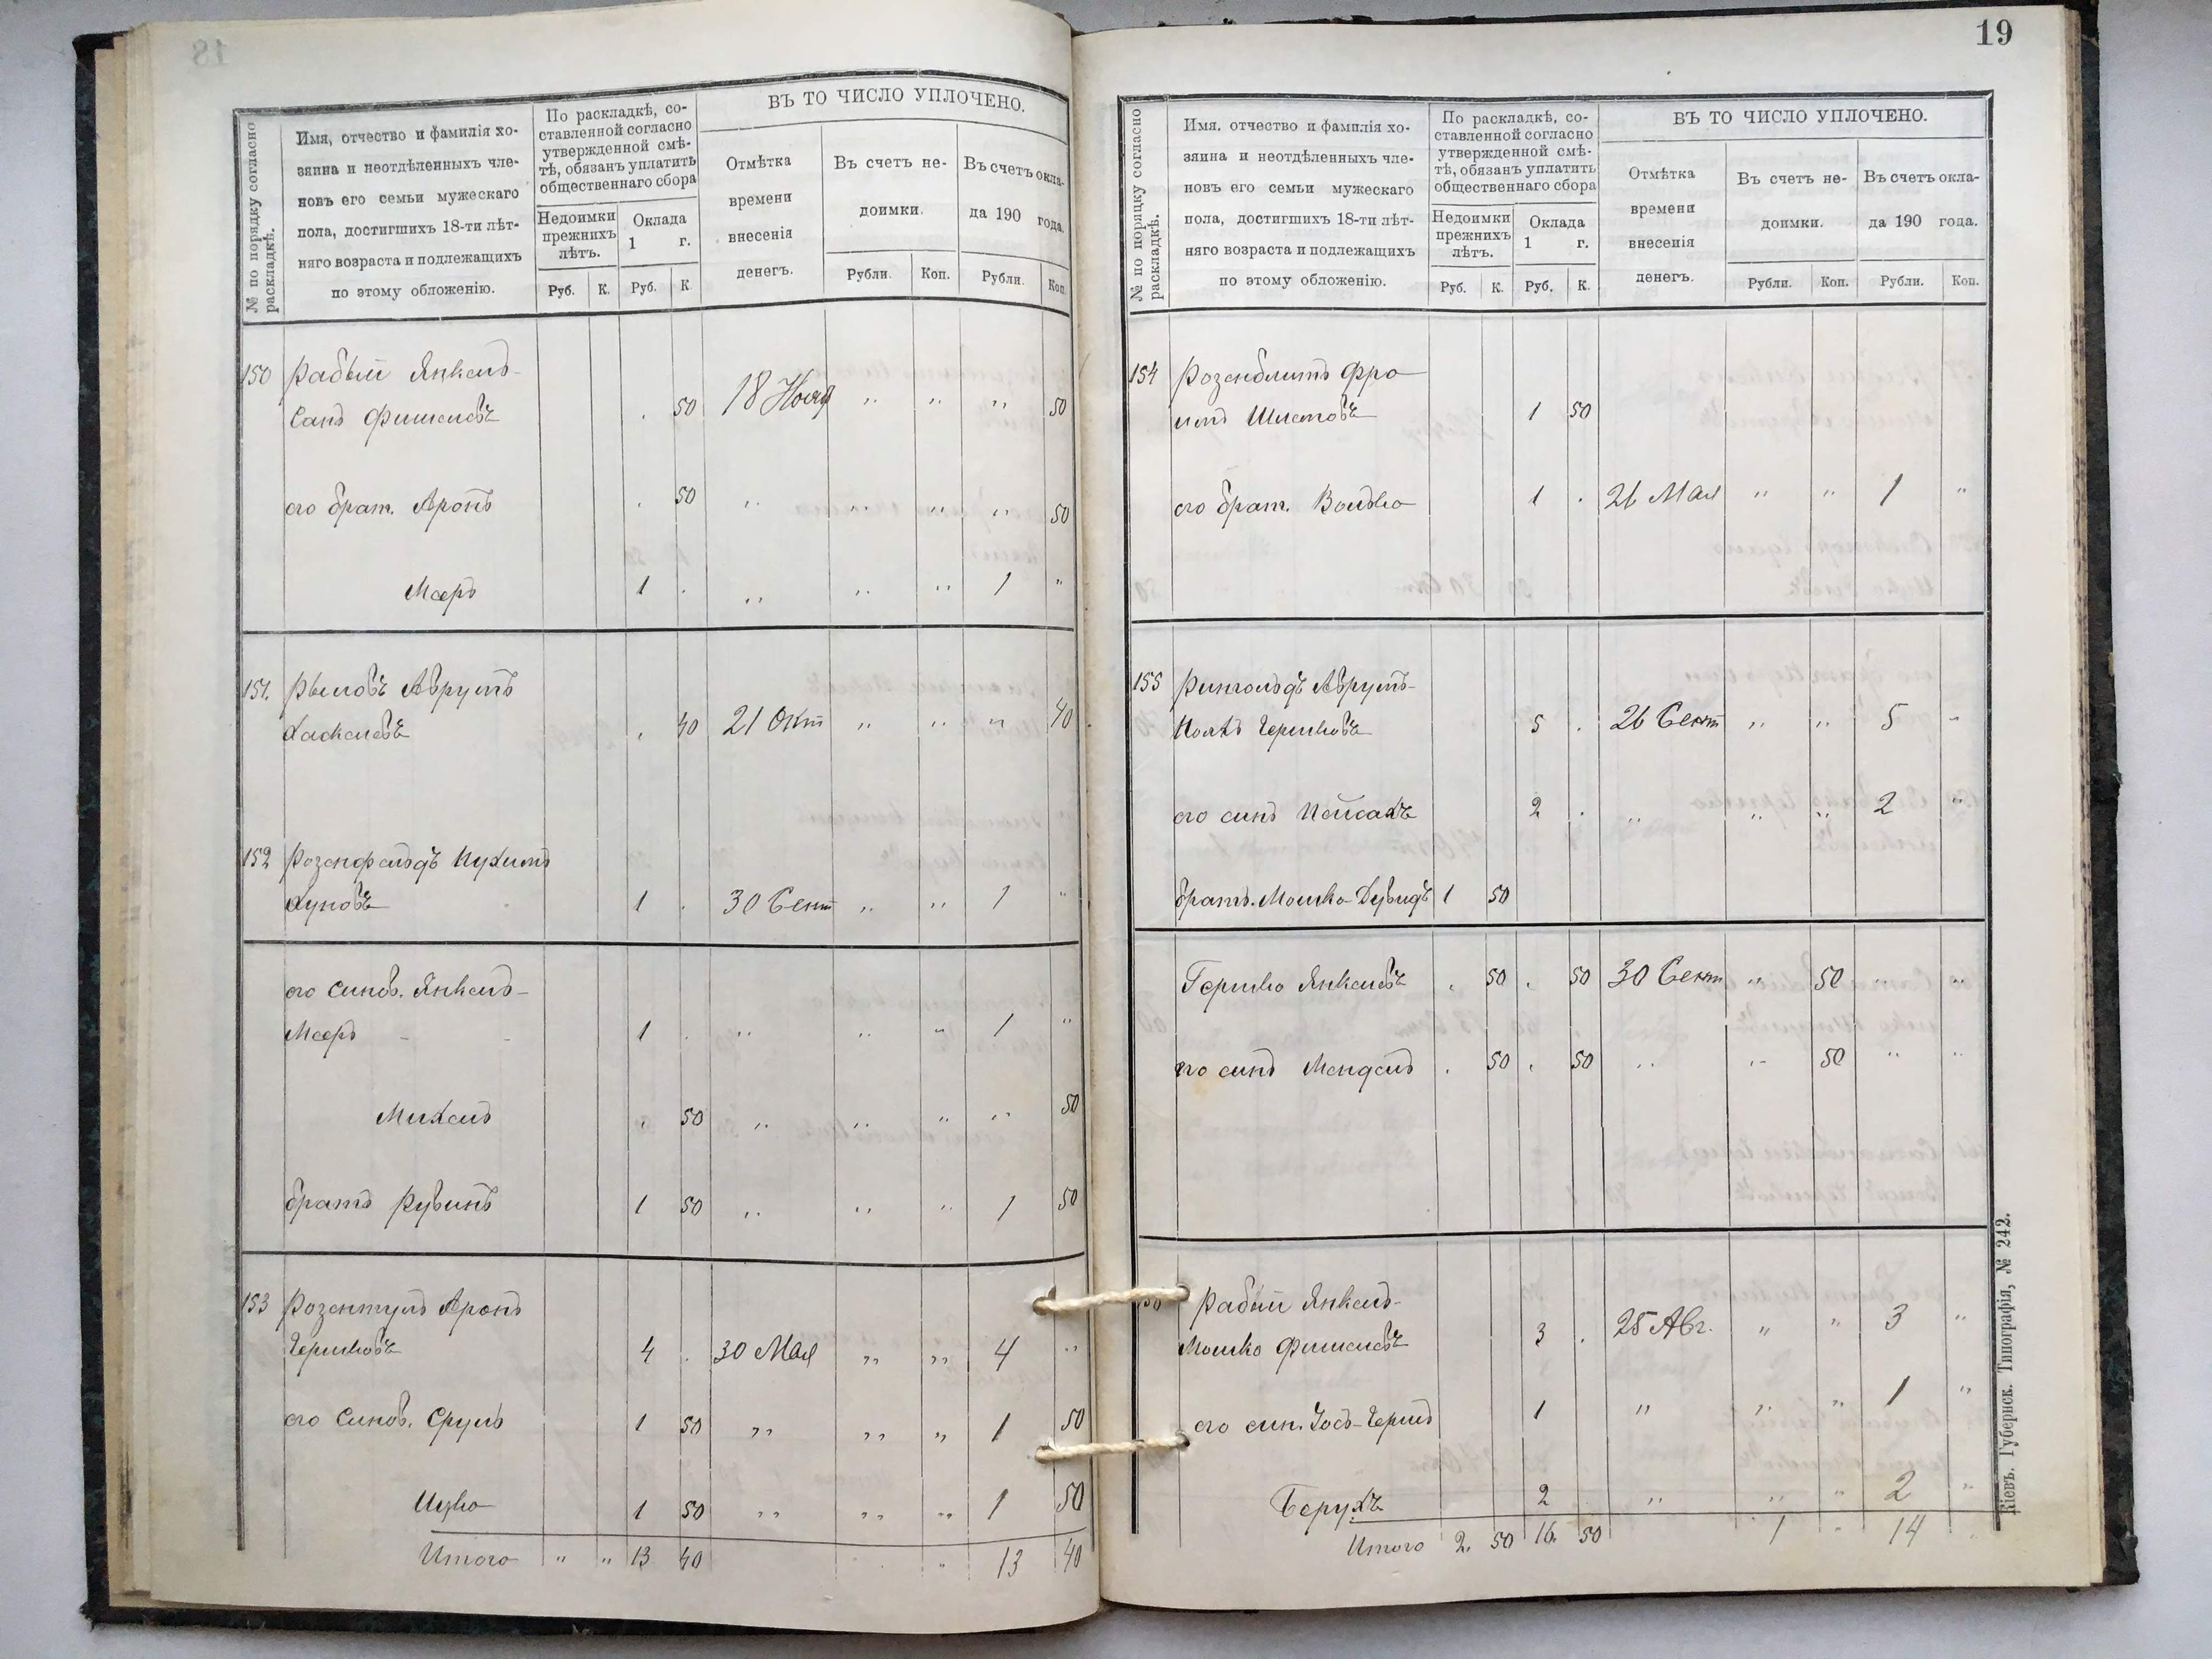 18
№ по порядку согласно раскладкѣ.
Имя, отчество и фамилія хо-
зяина и неотдѣленныхъ чле-
новъ его семьи мужескаго
пола, достигшихъ 18-ти лѣт-
няго возраста и подлежащихъ
по этому обложенію.
По раскладкѣ, со-
ставленной согласно
утвержденной смѣ-
тѣ, обязанъ уплатить
общественнаго сбора
Недоимки прежнихъ лѣтъ.
Оклада 1 г.
Руб. К. Руб. К
ВЪ ТО ЧИСЛО УПЛОЧЕНО.
Отмѣтка
времени
внесенія
денегъ.
Въ счетъ не-
доимки.
Въ счетъ окла-
да 190 года.
Рубли. Коп. Рубли. Коп.
150 Рабый Янкель-
Санъ Фишелевъ . 50 18 Нояб " " " 50
его брат. Аронъ . 50 " " " " 50
Мееръ 1 . " " " 1 "
151. Рыловъ Аврумъ
Хаскелевъ . 40 21 Окт " " " 40
152 Розенфельдъ Нухимъ
Хуновъ 1 . 30 Сент " " 1 "
его синов. Янкель-
Мееръ - - 1 . " " " 1 "
Михель . 50 " " " " 50
братъ Рувинъ 1 50 " " " 1 50
153 Розентулъ Аронъ
Гершковъ 4 . 30 Мая " " 4 "
его синов. Сруль 1 50 " " " 1 50
Ицко 1 50 " " " 1 50
Итого " " 13 40 " 13 40
19
№ по порядку согласно раскладкѣ.
Имя. отчество и фамилія хо-
зяина и неотдѣленныхъ чле-
новъ его семьи мужескаго
пола, достигшихъ 18-ти лѣт-
няго возраста и подлежащихъ
по этому обложенію.
По раскладкѣ, со-
ставленной согласно
утвержденной смѣ-
тѣ, обязанъ уплатить
общественнаго сбора
Недоимки прежнихъ лѣтъ.
Оклада 1 г.
Руб. К. Руб. К.
ВЪ ТО ЧИСЛО УПЛОЧЕНО.
Отмѣтка
времени
внесенія
денегъ.
Въ счетъ не-
доимки.
Въ счетъ окла-
да 190 года.
Рубли. Коп. Рубли. Коп.
154 Розенблитъ Фро
имъ Шлемовъ 1 50
его брат. Волько 1 . 26 Мая " " 1 "
155 Рингольдъ Аврумъ-
Гершковъ 5 . 26 Сент " " 5 "
его синъ Пейсахъ 2 . " " " 2 "
братъ. Мошко-Дувидъ 1 50
Гершко Янкелевъ . 50 . 50 30 Сент " 50 " "
его синъ Мендель . 50 . 50 " " 50 " "
Рабый Янкель-
Мошко Фишелевъ 3 . 25 Авг. " " 3 "
его син. Іось-Гершъ 1 " " " 1 "
Берухъ 2 " " " 2 "
Итого 2. 50 16. 50 1 " 14
Кіевъ. Губернск. Типографія, № 242.